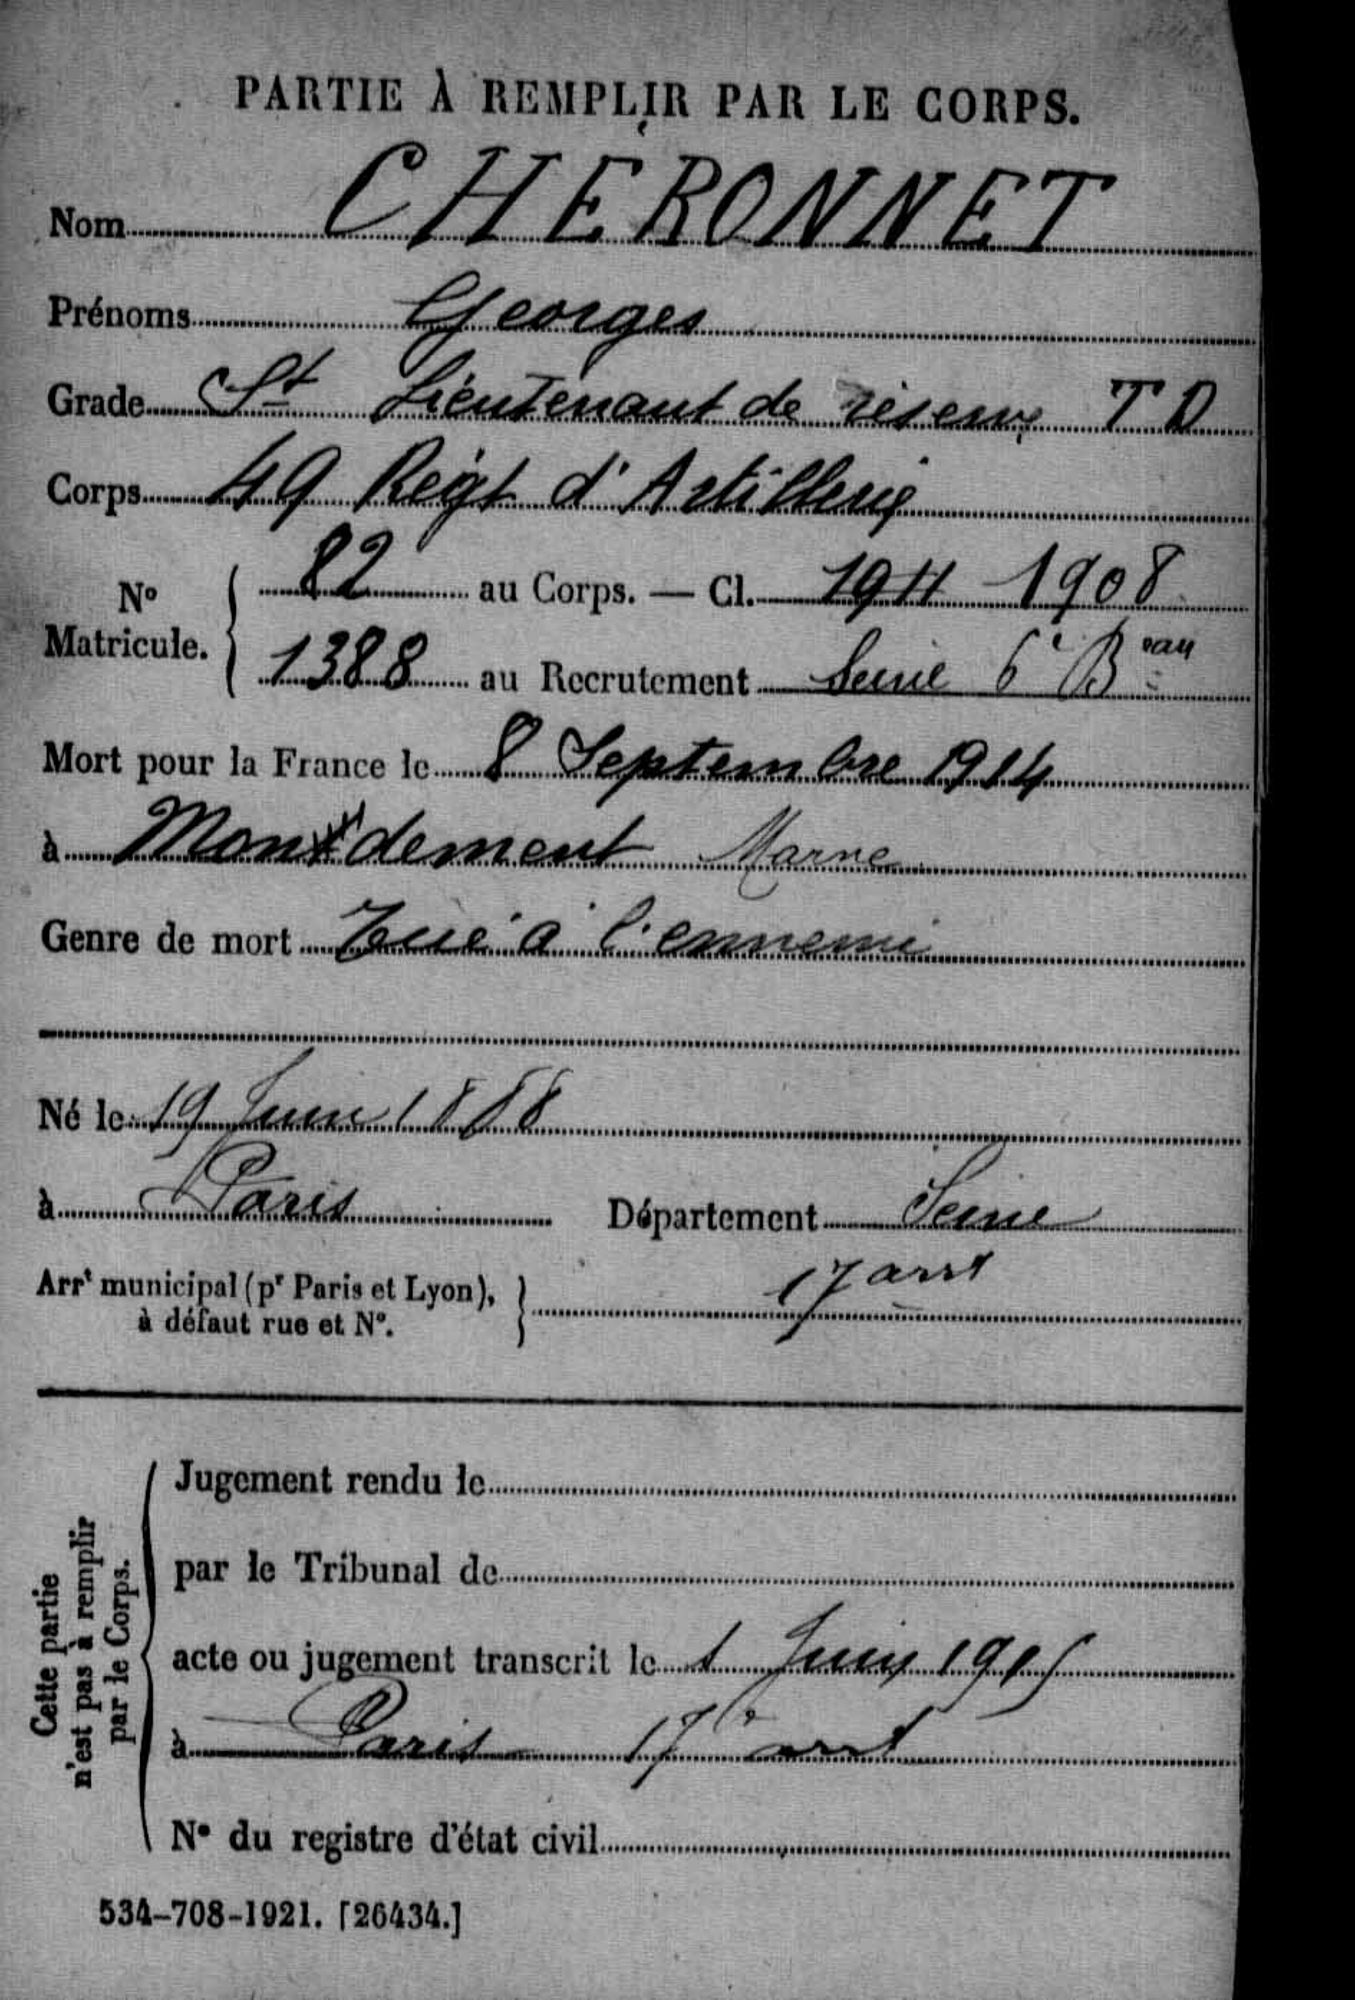 PARTIE À REMPLIR PAR LE CORPS.
Nom CHERONNET
Prénoms Georges
Grade St Lieutenant de réserve TD
Corps 49 Régt d'Artillerie
No Matricule. 82 au Corps. — Cl. 1911 1908
1388 au Recrutement Seine 6e Beau
Mort pour la France le 8 Septembre 1914
à Mondement Marne
Genre de mort Tué à l'ennemi
Né le 19 Juin 1888
à Paris Département Seine
Arrt municipal (pr Paris et Lyon), à défaut rue et No. 17 arrt
Cette partie n'est pas à remplir par le Corps.
Jugement rendu le
par le Tribunal de
acte ou jugement transcrit le 1 Juin 1915
à Paris 17e arrt
No du registre d'état civil
534-708-1921. [26434.]